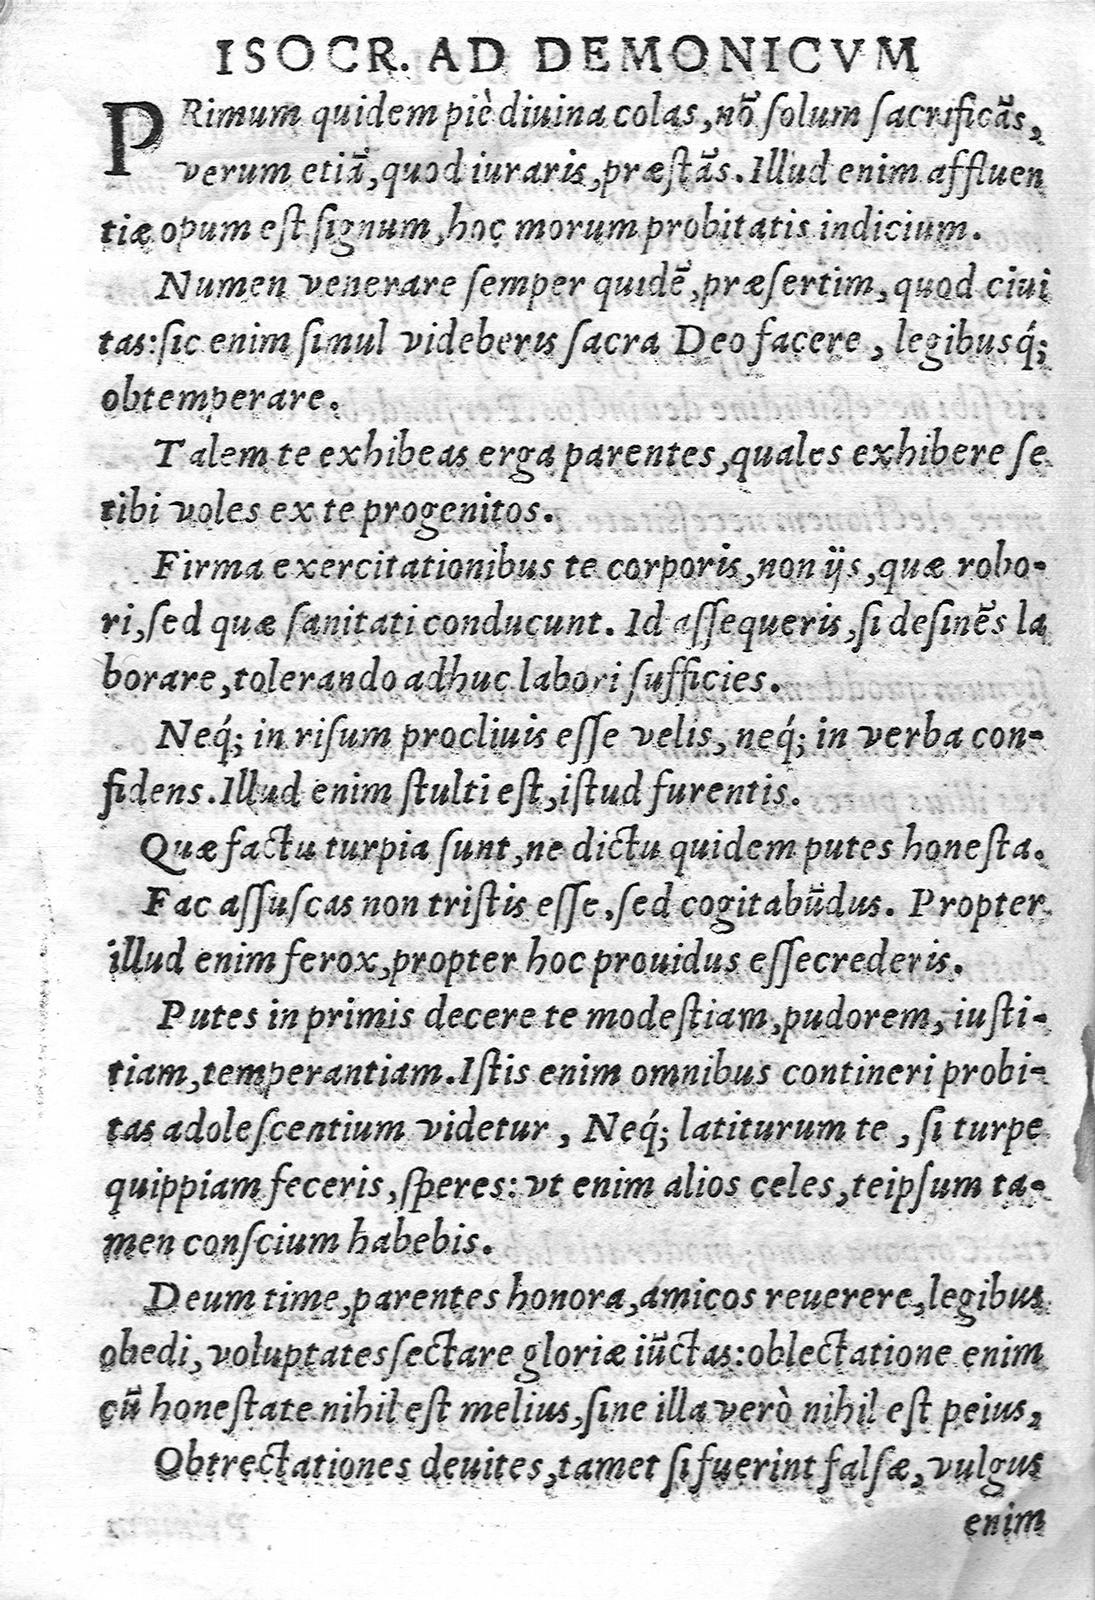 ISOCR. AD DEMONICVM
PRimum quidem piè diuina colas, nõ ſolum ſacrificãs,
verum etiã, quod iuraris, præſtãs. Illud enim affluen
tiæ opum eſt ſignum, hoc morum probitatis indicium.
Numen venerare ſemper quidẽ, præſertim, quod ciui
tas: ſic enim ſimul videberis ſacra Deo facere, legibusq́;
obtemperare.
Talem te exhibeas erga parentes, quales exhibere ſe
tibi voles ex te progenitos.
Firma exercitationibus te corporis, non ijs, quæ robo-
ri, ſed quæ ſanitati conducunt. Id aſſequeris, ſi deſinẽs la
borare, tolerando adhuc labori ſufficies.
Neq́; in riſum procliuis eſſe velis, neq́; in verba con-
fidens. Illud enim ſtulti eſt, iſtud furentis.
Quæ factu turpia ſunt, ne dictu quidem putes honeſta.
Fac aſſuſcas non triſtis eſſe, ſed cogitabũdus. Propter
illud enim ferox, propter hoc prouidus eſſe crederis.
Putes in primis decere te modeſtiam, pudorem, iuſti-
tiam, temperantiam. Iſtis enim omnibus contineri probi-
tas adoleſcentium videtur, Neq́; latiturum te, ſi turpe
quippiam feceris, ſperes: vt enim alios celes, teipſum ta-
men conſcium habebis.
Deum time, parentes honora, amicos reuerere, legibus
obedi, voluptates ſectare gloriæ iũctas: oblectatione enim
cũ honeſtate nihil eſt melius, ſine illa verò nihil eſt peius,
Obtrectationes deuites, tamet ſi fuerint falſæ, vulgus
enim